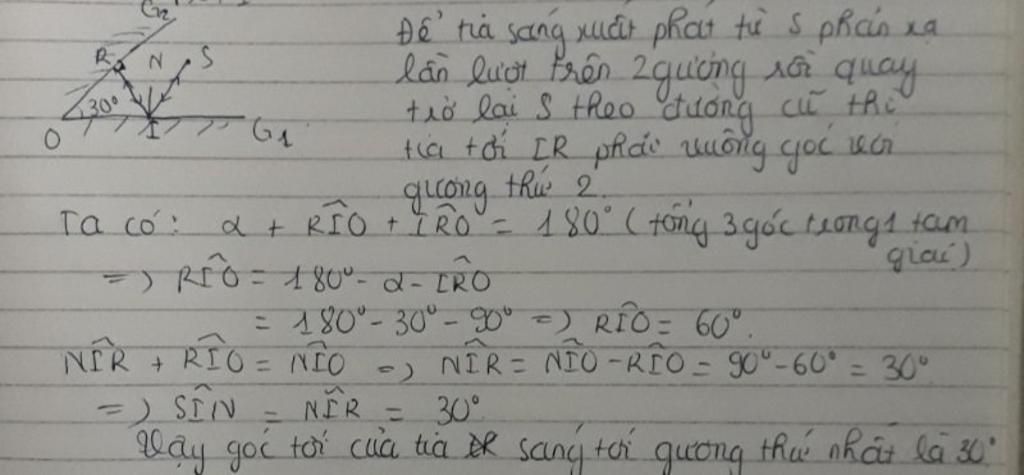 G2
R N S
30°
O I G1
Để tia sáng xuất phát từ S phản xạ
lần lượt trên 2 gương rồi quay
trở lại S theo đường cũ thì
tia tới IR phải vuông góc với
gương thứ 2.
Ta có: α + RÎO + IR̂O = 180° (tổng 3 góc trong 1 tam
giác)
=) RÎO = 180° - α - IR̂O
= 180° - 30° - 90° =) RÎO = 60°.
NÎR + RÎO = NÎO =) NÎR = NÎO - RÎO = 90° - 60° = 30°
=) SÎN = NÎR = 30°
Vậy góc tới của tia sáng tới gương thứ nhất là 30°